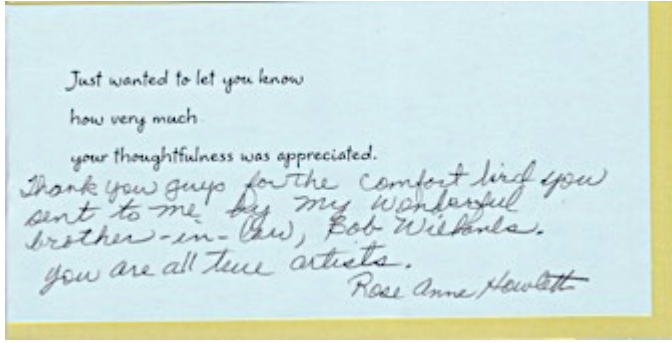 Just wanted to let you know
how very much
your thoughtfulness was appreciated.
Thank you guys for the comfort bird you
sent to me by my wonderful
brother-in-law, Bob
you are all true artists.
Rose Anne Howlett